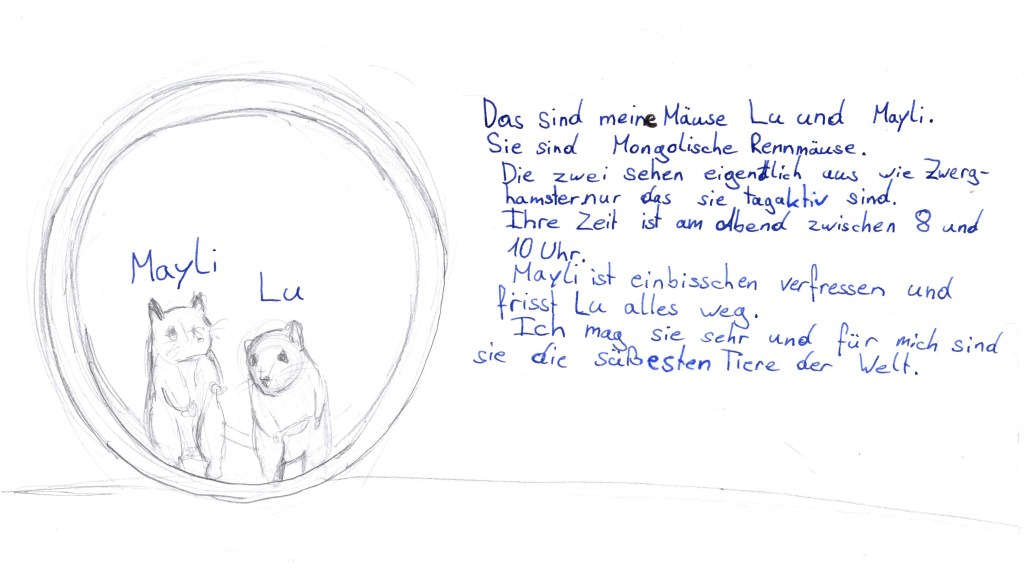 Mayli
Lu
Das sind meine Mäuse Lu und Mayli.
Sie sind Mongolische Rennmäuse.
Die zwei sehen eigentlich aus wie Zwerg-
hamster nur das sie tagaktiv sind.
Ihre Zeit ist am Abend zwischen 8 und
10 Uhr.
Mayli ist einbisschen verfressen und
frisst Lu alles weg.
Ich mag sie sehr und für mich sind
sie die süßesten Tiere der Welt.